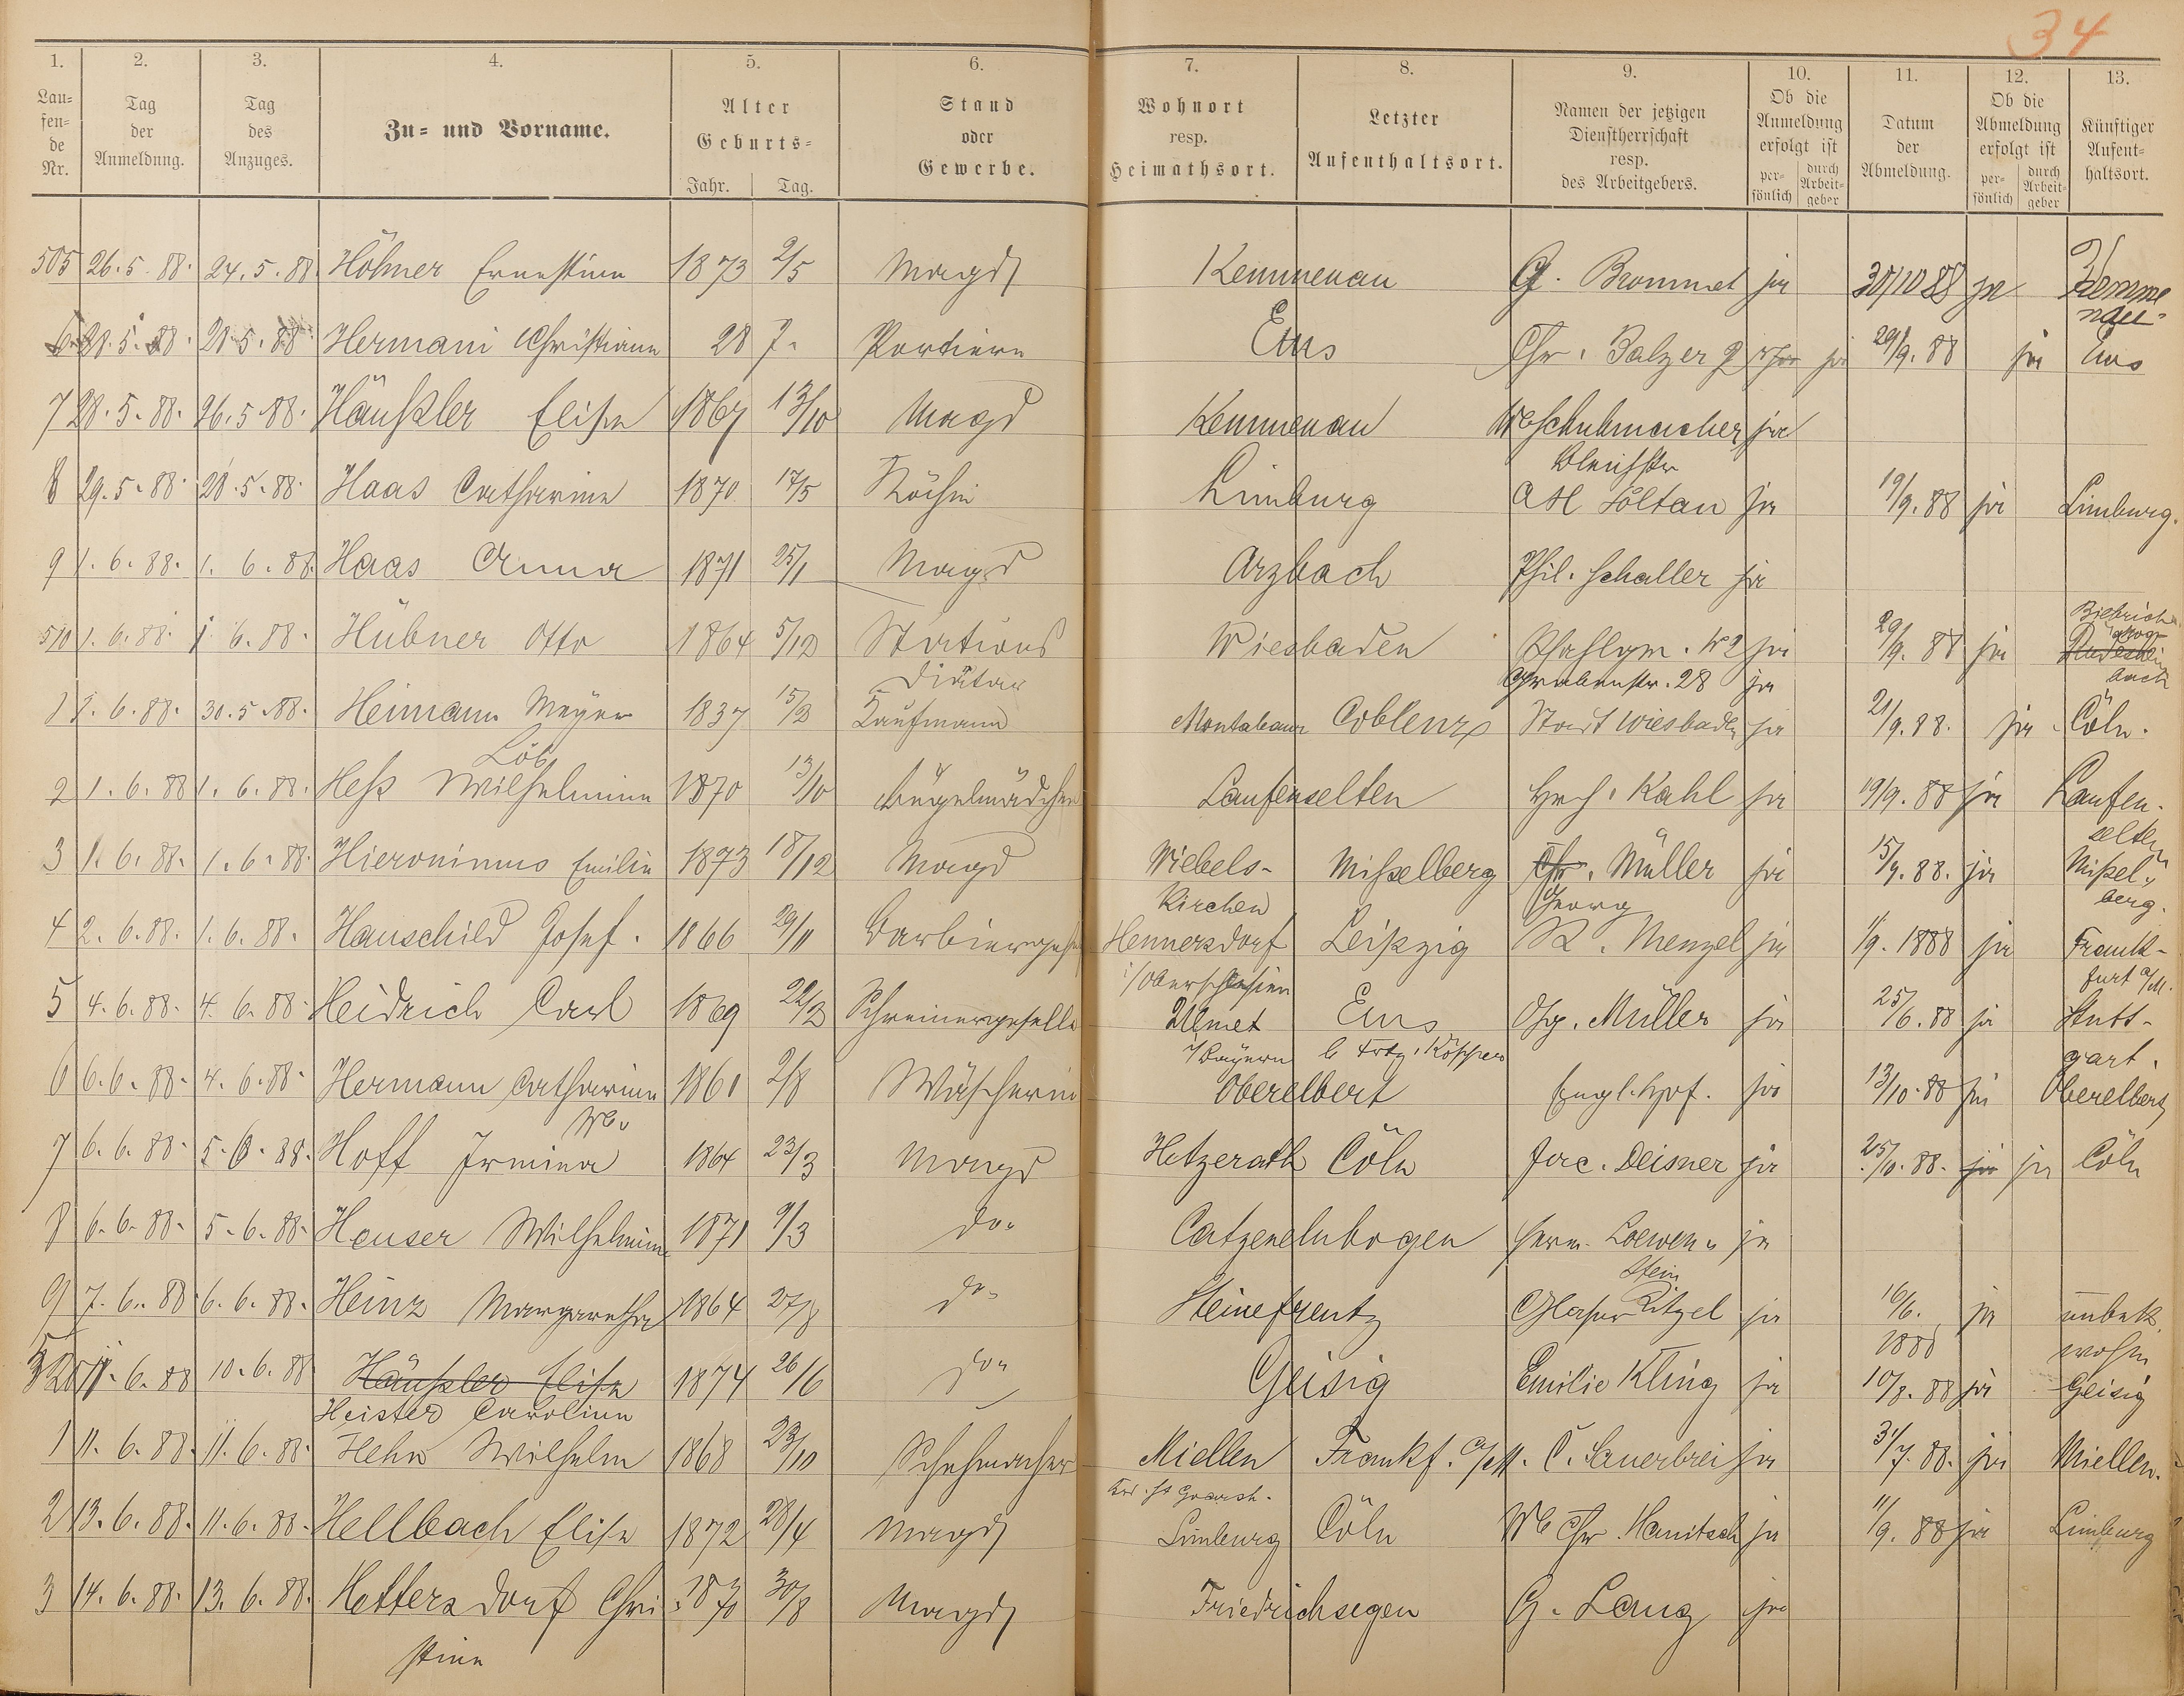 34
1. 2. 3. 4. 5. 6. 7. 8. 9. 10. 11. 12. 13.
Lau=fen=de Nr. Tag der Anmeldung. Tag des Anzuges. Zu= und Vorname. Alter Geburts= Jahr. Tag. Stand oder Gewerbe. Wohnort resp. Heimathsort. Letzter Aufenthaltsort. Namen der jetzigen Dienstherrschaft resp. des Arbeitgebers. Ob die Anmeldung erfolgt ist per=sönlich durch Arbeit=geber Datum der Abmeldung. Ob die Abmeldung erfolgt ist per=sönlich durch Arbeit=geber Künftiger Aufent=haltsort.
505 26.5.88. 24.5.88. Höhner Ernestine 1873 2/5 Magd Kemmenau G. Brommet ja 30/10 88 ja Kemme
nau
6 28.5.88. 28.5.88 Hermani Christiane 28 J. Portiere Ems Chr. Balzer ja 29/9.88 ja Ems
7 28.5.88. 26.5.88. Häußler Elise 1867 13/10 Magd Kemmenau We Schuhmacher ja
Bleichstr
8 29.5.88. 28.5.88. Haas Catharine 1870 17/5 Köchin Limburg A H Soltau ja 19/9.88 ja Limburg.
9 1.6.88. 1.6.88. Haas Anna 1871 25/1 Magd Arzbach Phil. Schaller ja
510 1.6.88. 1.6.88. Hübner Otto 1864 5/12 Stations Wiesbaden Pfahlgr. No 2 ja 29/9.88 ja Biebrich
Diätar Grabenstr. 28 ja
1 1.6.88. 30.5.88. Heimann Meyer 1837 15/2 Kaufmann Montabaur Coblenz Stadt Wiesbaden ja 21/9.88. ja Cöln.
Löb
2 1.6.88 1.6.88. Heß Wilhelmine 1870 13/10 Bügelmädchen Laufenselten Hrch. Kahl ja 19/9.88 ja Laufen-
selten
3 1.6.88. 1.6.88. Hieronimus Emilie 1873 18/12 Magd Wiebels- Mißelberg Chr. Müller ja 15/9.88. ja Mißel-
Kirchen Georg berg.
4 2.6.88. 1.6.88. Hauschild Josef. 1866 29/11 Barbierges Hennersdorf Leipzig R. Menzel ja 1/9.1888 ja Frank-
i/Oberschlesien furt a/M.
5 4.6.88. 4.6.88. Heidrich Carl 1869 22/2 Schreinergeselle Ulmet Ems Chr. Müller ja 25/6.88 ja Stutt-
i/Bayern gart.
6 6.6.88. 4.6.88. Hermann Catharine 1861 2/8 Wäscherin Oberelbert Engl. Hof. ja 13/10.88 ja Oberelbert
We
7 6.6.88. 5.6.88. Hoff Irmina 1864 23/3 Magd Hetzerath Cöln Jac. Deisner ja 25/10.88. ja ja Cöln
8 6.6.88. 5.6.88. Hauser Wilhelmine 1871 9/3 do. Catzenelnbogen Herm. Loewen- ja
stein
9 7.6.88 6.6.88. Heinz Margaretha 1864 27/8 do. Steinefrentz Glaser Ritzel ja 16/6. ja unbek.
1888 wohin
520 11.6.88 10.6.88 Häußler Elise 1874 26/6 do. Geisig Emilie Kling ja 10/8.88 ja Geisig
Heister Caroline
1 11.6.88. 11.6.88. Hehn Wilhelm 1868 23/10 Schuhmacher Miellen Frankf. a/M. C. Sauerbrei ja 31/7.88. ja Miellen.
Krs. St Goarsh.
2 13.6.88. 11.6.88. Hellbach Elise 1872 28/4 Magd Limburg Cöln We Chr. Hanitsch ja 11/9.88 ja Limburg
3 14.6.88. 13.6.88. Hettersdorf Chri- 1870 30/8 Magd Friedrichsegen G. Lang ja
stine